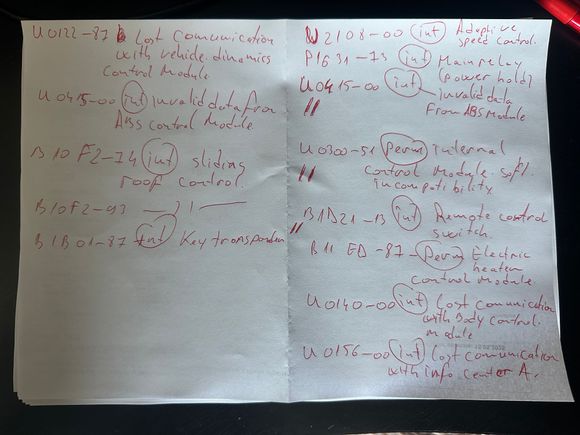 U0122-87 Lost Comunication
with vehicle dinamics
Control Module
U0415-00 int invalid data from
ABS Control Module
B10F2-14 int sliding
roof control.
B10F2-93 —11—
B1B01-87 int Key transponder
U2108-00 int Adaphive
speed control.
P1631-73 int Main relay
(power hold)
U0415-00 int invalid data
// From ABS Module
U0300-51 Perm internal
// control Module soft.
incompatibility
B1D21-13 int Remote control
// switch.
B11ED-87-Perm Electric
heater
control Module
U0140-00 int Lost Comunication
with Body Control.
Module
U0156-00 int Lost comunication
with info center A.